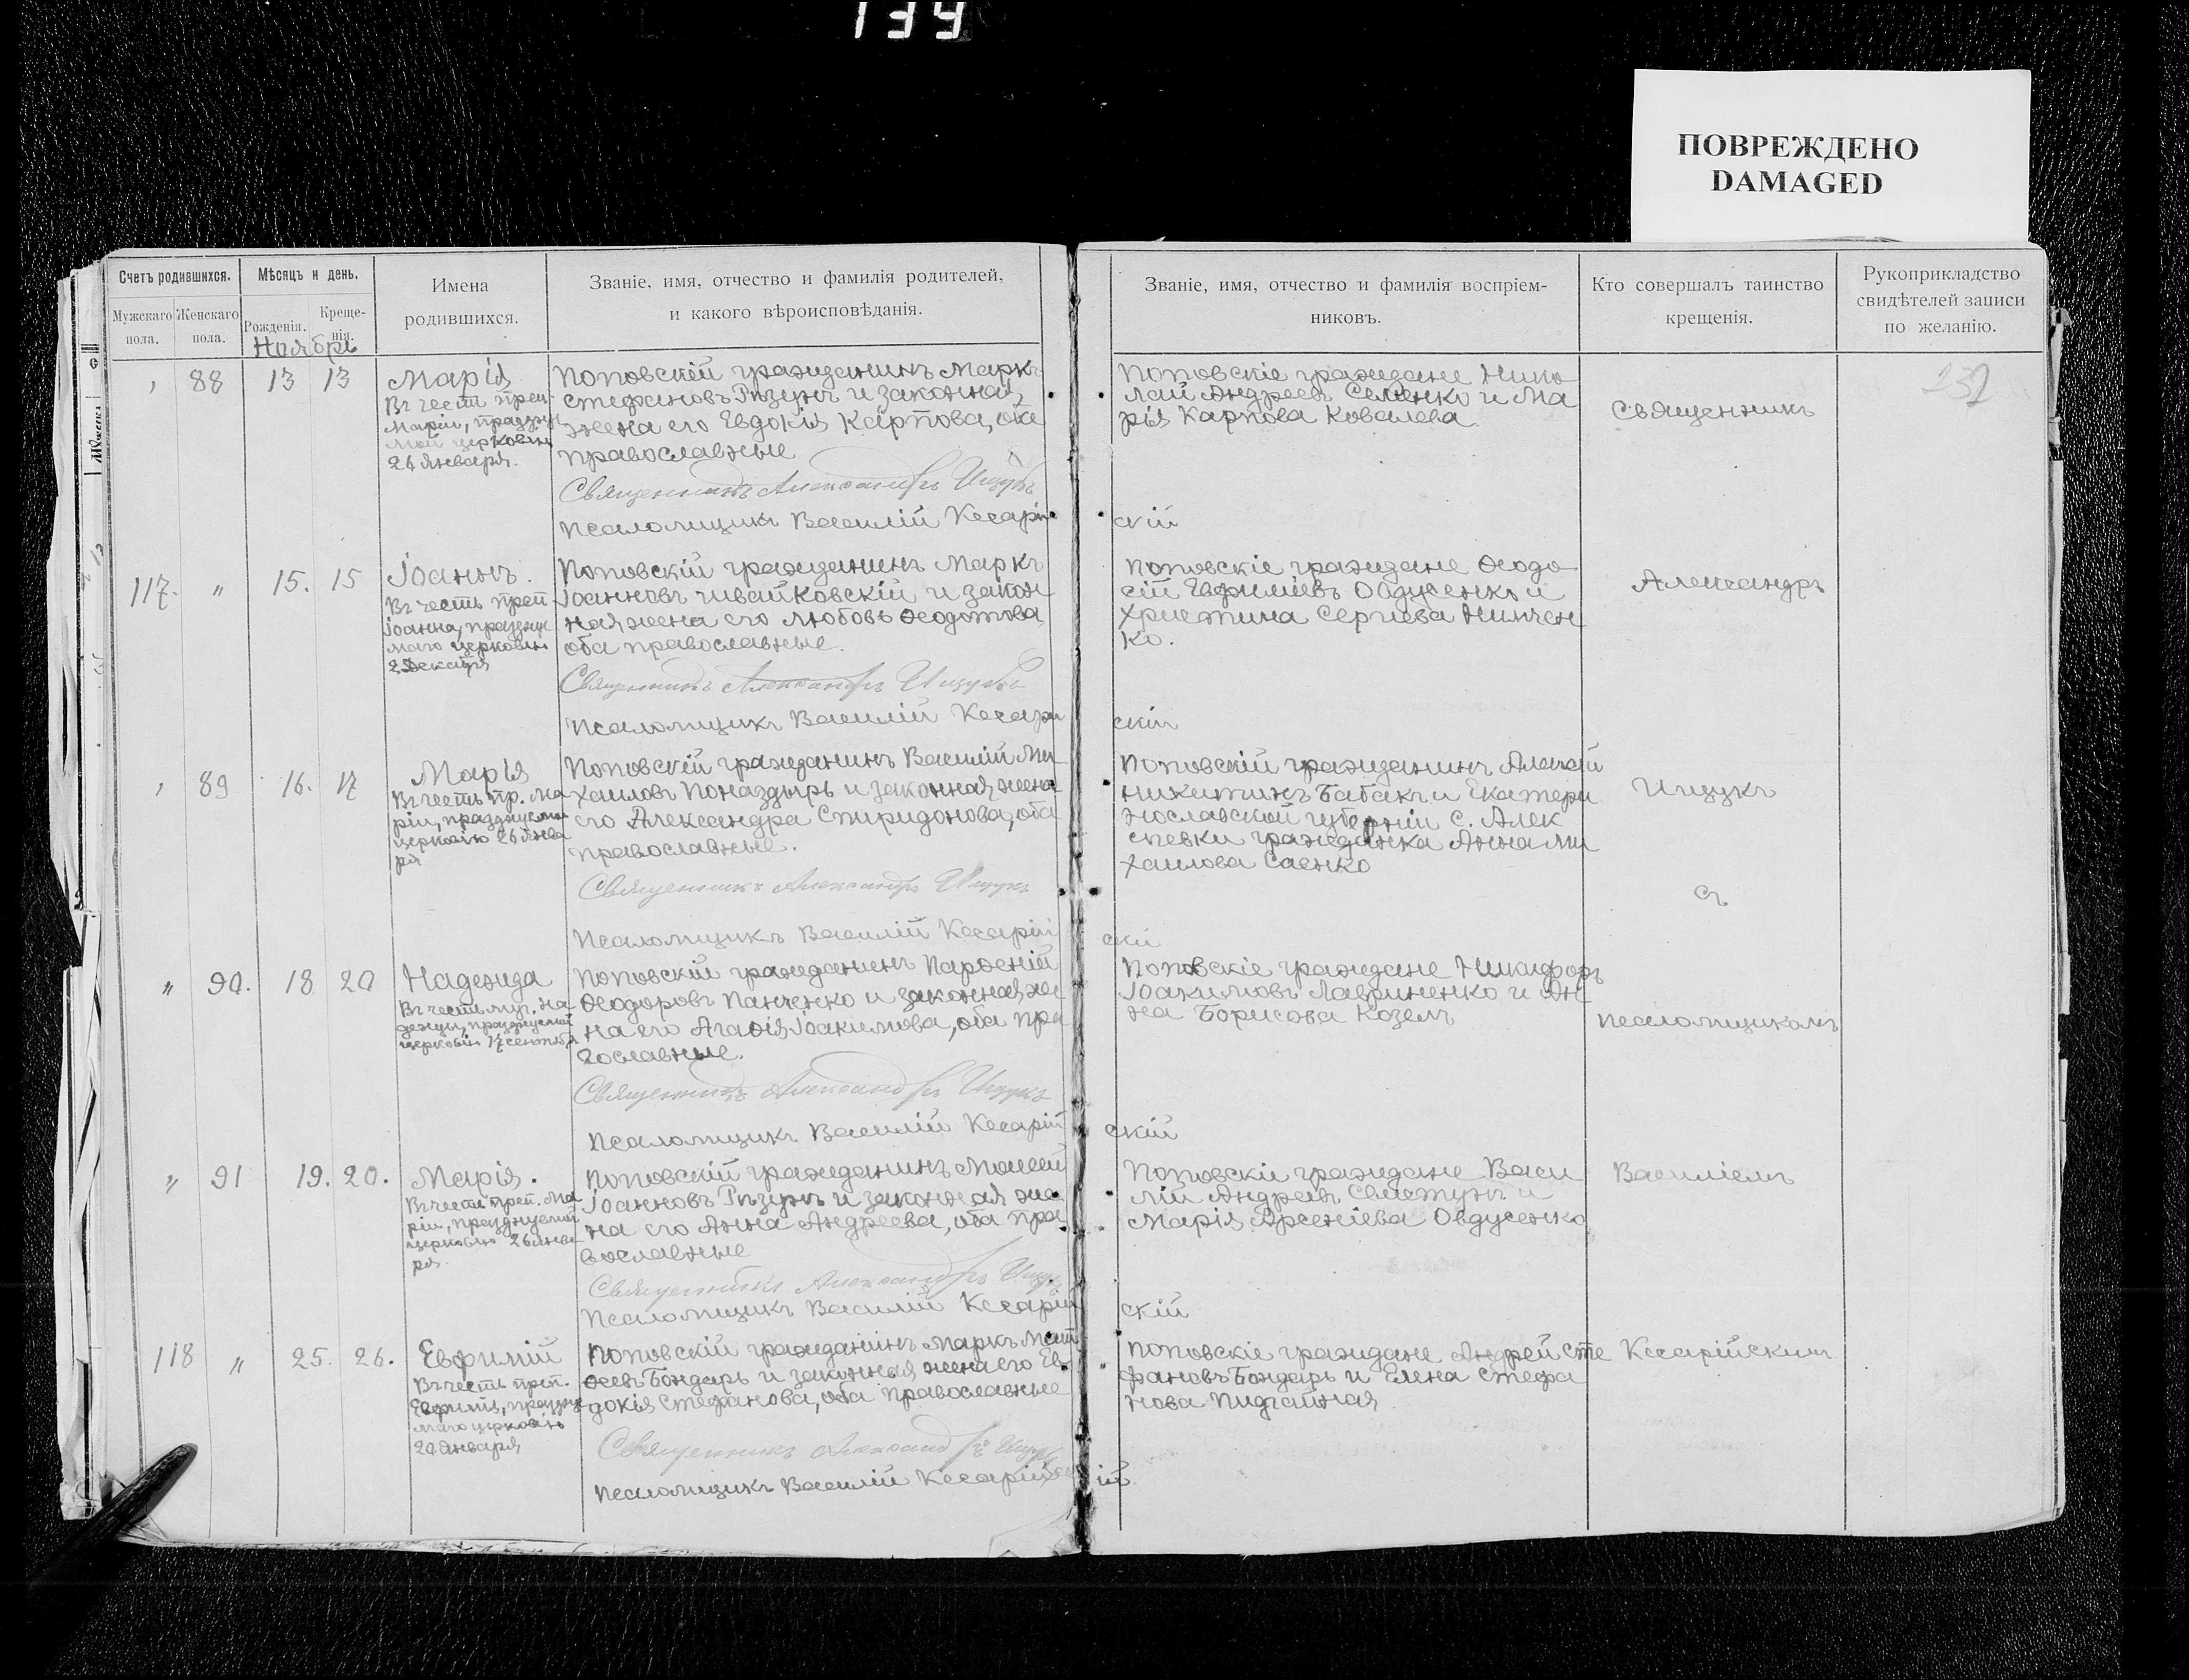 139
ПОВРЕЖДЕНО
DAMAGED
Счетъ родившихся.
Мужскаго пола.
Женскаго пола.
Мѣсяцъ и день.
Рожденія.
Крещенія.
Имена
родившихся.
Званіе, имя, отчество и фамилія родителей,
и какого вѣроисповѣданія.
Званіе, имя, отчество и фамилія воспріем-
никовъ.
Кто совершалъ таинство
крещенія.
Рукоприкладство
свидѣтелей записи
по желанію.
Ноябрь
88 13 13
Марія
Въ честь преп.
Маріи, праздну
мой церковію
26 января.
Поповскій гражданинъ Маркъ
Стефановъ Рѣзунъ и законная
жена его Евдокія Карпова, оба
православные
Священникъ Александръ Ищукъ
Псаломщикъ Василій Кесарій
скій
Поповскіе граждане Нико
лай Андреевъ Семенко и Ма
рія Карпова Ковалева.
Священникъ
117. " 15. 15
Іоаннъ.
Въ честь преп
Іоанна, праздну
маго церковію
Поповскій гражданинъ Маркъ
Іоанновъ Швайковскій и закон
ная жена его Любовь Ѳеодотова
оба православные.
Священникъ Александръ Ищукъ
Псаломщикъ Василій Кесарій
скій
Поповскіе граждане Ѳеодо
сій Евфиміевъ Овдусенко и
Христина Сергіева Нимчен
ко.
Александръ
89 16. 17
Марія
Въ честь пр. Ма
ріи, празднуемой
церковію 26 янва
ря
Поповскій гражданинъ Василій Ми
хаиловъ Поназдырь и законная жена
его Александра Спиридонова, оба
православные.
Священникъ Александръ Ищукъ
Псаломщикъ Василій Кесарій
скій
Поповскій гражданинъ Алексій
Никитинъ Бабакъ и Екатери
нославской губерніи с. Алек
сѣевки гражданка Анна Ми
хаилова Саенко
Ищукъ
съ
" 90. 18 20
Надежда
Въ честь муч. На
дежды, празднуемой
церковію 17 сентябр
Поповскій гражданинъ Парѳеній
Ѳеодоровъ Панченко и законная же
на его Агаѳія Іоакимова, оба пра
вославные.
Священникъ Александръ Ищукъ
Псаломщикъ Василій Кесарій
скій
Поповскіе граждане Никифоръ
Іоакимовъ Лавриненко и Ан
на Борисова Козелъ
псаломщикомъ
" 91 19. 20.
Марія.
Въ честь преп. Ма
ріи, празднуемой
церковію 26 янва
ря.
Поповскій гражданинъ Моисей
Іоанновъ Рѣзунъ и законная же
на его Анна Андреева, оба пра
вославные
Священникъ Александръ Ищукъ
Псаломщикъ Василій Кесарій
скій
Поповскіе граждане Васи
лій Андреевъ Свистунъ и
Марія Арсеніева Овдусенко
Василіемъ
118 " 25. 26.
Евфимій
Въ честь преп.
Евфимія, праздну
маго церковію
20 января
Поповскій гражданинъ Маркъ Мат
ѳеевъ Бондарь и законная жена его Ев
докія Стефанова, оба православные
Священникъ Александръ Ищукъ
Псаломщикъ Василій Кесарійск
ій
Поповскіе граждане Андрей Сте
фановъ Бондарь и Елена Стефа
нова
Кесарійскимъ